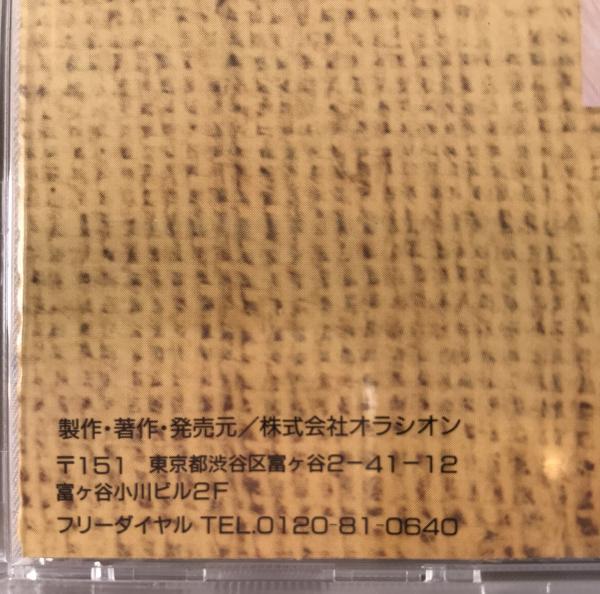 製作・著作・発売元／株式会社オラシオン
〒151 東京都渋谷区富ヶ谷2－41－12
富ヶ谷小川ビル2F
フリーダイヤル TEL.0120-81-0640